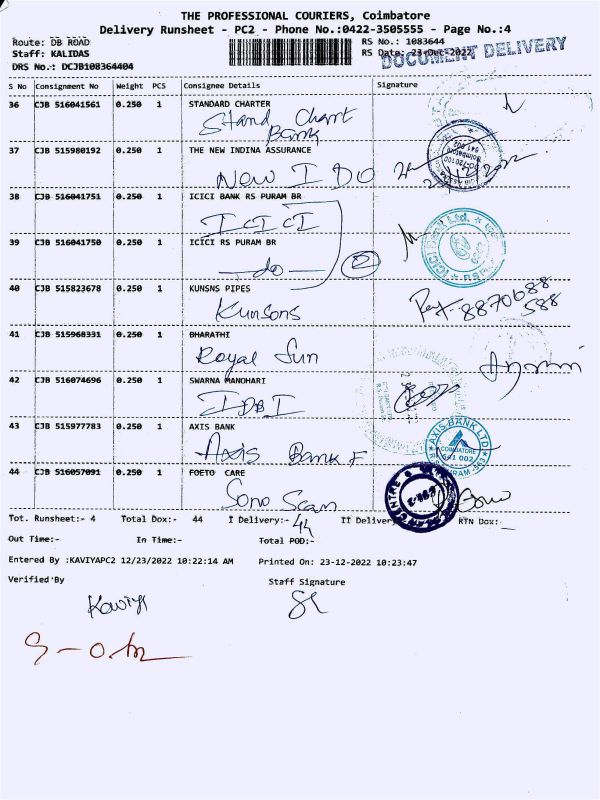 THE PROFESSIONAL COURIERS, Coimbatore
Delivery Runsheet - PC2 - Phone No.:0422-3505555 - Page No.:4
Route: DB ROAD
RS No.: 1083644
Staff: KALIDAS
RS Date: 23-Dec-2022
DOCUMENT DELIVERY
DRS No.: DCJB108364404
S No Consignment No Weight PCS Consignee Details Signature
36 CJB 516041561 0.250 1 STANDARD CHARTER
Stand Chart
Bank
37 CJB 515980192 0.250 1 THE NEW INDINA ASSURANCE
New I DO
38 CJB 516041751 0.250 1 ICICI BANK RS PURAM BR
ICICI
39 CJB 516041750 0.250 1 ICICI RS PURAM BR
—do— 2
40 CJB 515823678 0.250 1 KUNSNS PIPES
Kunsons
8870688
588
41 CJB 515968331 0.250 1 BHARATHI
Royal Sun
42 CJB 516074696 0.250 1 SWARNA MANOHARI
IDBI
43 CJB 515977783 0.250 1 AXIS BANK
Axis Bank F
AXIS BANK LTD
COIMBATORE
641 002
44 CJB 516057091 0.250 1 FOETO CARE
Sono Scan
Tot. Runsheet:- 4 Total Dox:- 44 I Delivery:- 44 II Delivery RTN Dox:-
Out Time:- In Time:- Total POD:-
Entered By :KAVIYAPC2 12/23/2022 10:22:14 AM Printed On: 23-12-2022 10:23:47
Verified By Staff Signature
Kaviya